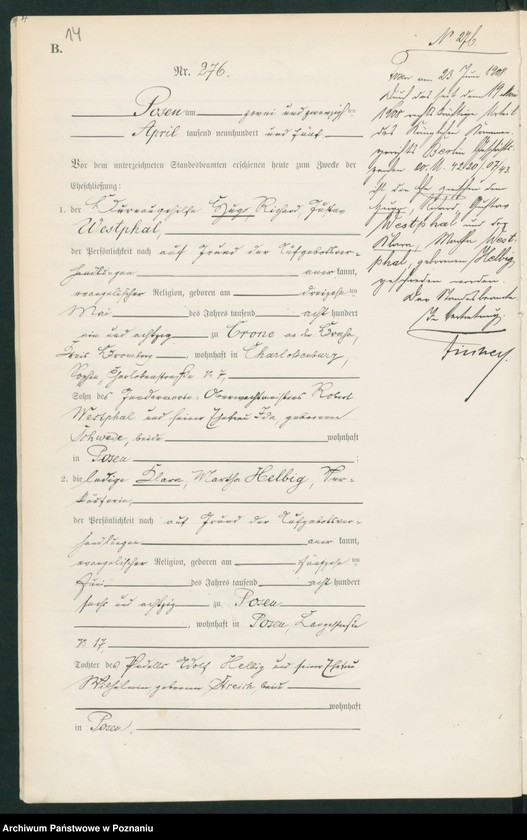 14
B.
Nr. 276.
Posen am zwei und zwanzigsten
April tausend neunhundert und fünf
Vor dem unterzeichneten Standesbeamten erschienen heute zum Zwecke der
Eheschließung:
1. der Hugo Richard Gustav
Westphal,
der Persönlichkeit nach auf Grund der Aufgebotsver-
handlungen anerkannt,
evangelischer Religion, geboren am dreizehnten
Mai des Jahres tausend acht hundert
ein und achtzig zu Crone an der Brahe,
Kreis Bromberg, wohnhaft in Charlottenburg,
Sophie Charlottenstraße
Sohn des Robert
Westphal und seiner Ehefrau Ida, geborenen
Schwede, beide wohnhaft
in Posen ;
2. die ledige Clara, Martha Helbig, Ver-
käuferin,
der Persönlichkeit nach auf Grund der Aufgebotsver-
handlungen anerkannt,
evangelischer Religion, geboren am
Juni des Jahres tausend acht hundert
sechs und achtzig zu Posen
, wohnhaft in Posen,
17,
Tochter des Adolf Helbig und seiner Ehefrau
geborenen beide
wohnhaft
in Posen.
No 276
Posen am 23 Juni 1908
Durch das seit dem 19 Mai
1908 rechtskräftige Urteil
des Königlichen Kammer-
gerichts Berlin Geschäfts-
ist die Ehe zwischen dem
Hugo Richard Gustav
Westphal und der
Klara, Martha West-
phal, geborenen Helbig
geschieden worden.
Der Standesbeamte
In Vertretung.
Archiwum Państwowe w Poznaniu